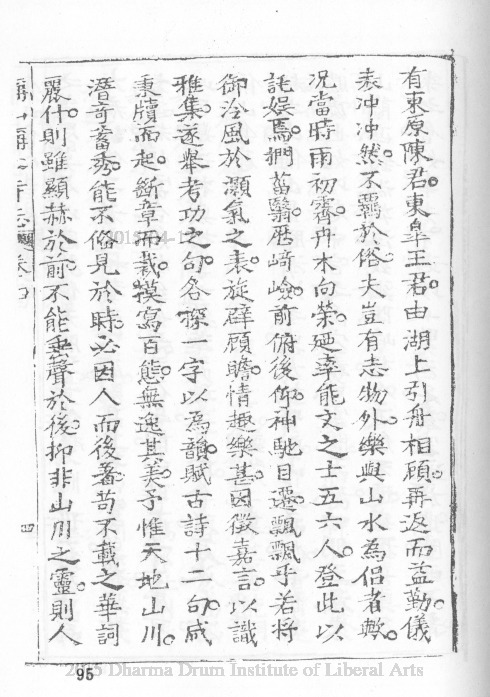 有東原陳君。東皐王君。由湖上引舟相顧。再返而益勤。儀
表冲冲然。不羈於俗。夫豈有志物外。樂與山水為侶者歟。
況當時雨初霽。卉木向榮。廼率能文之士五六人。登此以
託娱焉。捫蘿翳。歷崎嶮。前俯後仰。神馳目遷。飄飄乎若將
御泠風於灝氣之表。旋辟顧瞻。情趣樂甚。因徵嘉言。以識
雅集。遂舉考功之句。各探一字以為韻。賦古詩十二句。咸
秉牘而起。斷章而裁。摸寫百態。無逸其美。予惟天地山川。
潛奇蓄秀。能不偹見於時。必因人而後著。苟不載之華詞
麗什。則雖顯赫於前。不能垂聲於後。抑非山川之靈。則人
四
95
2015 Dharma Drum Institute of Liberal Arts